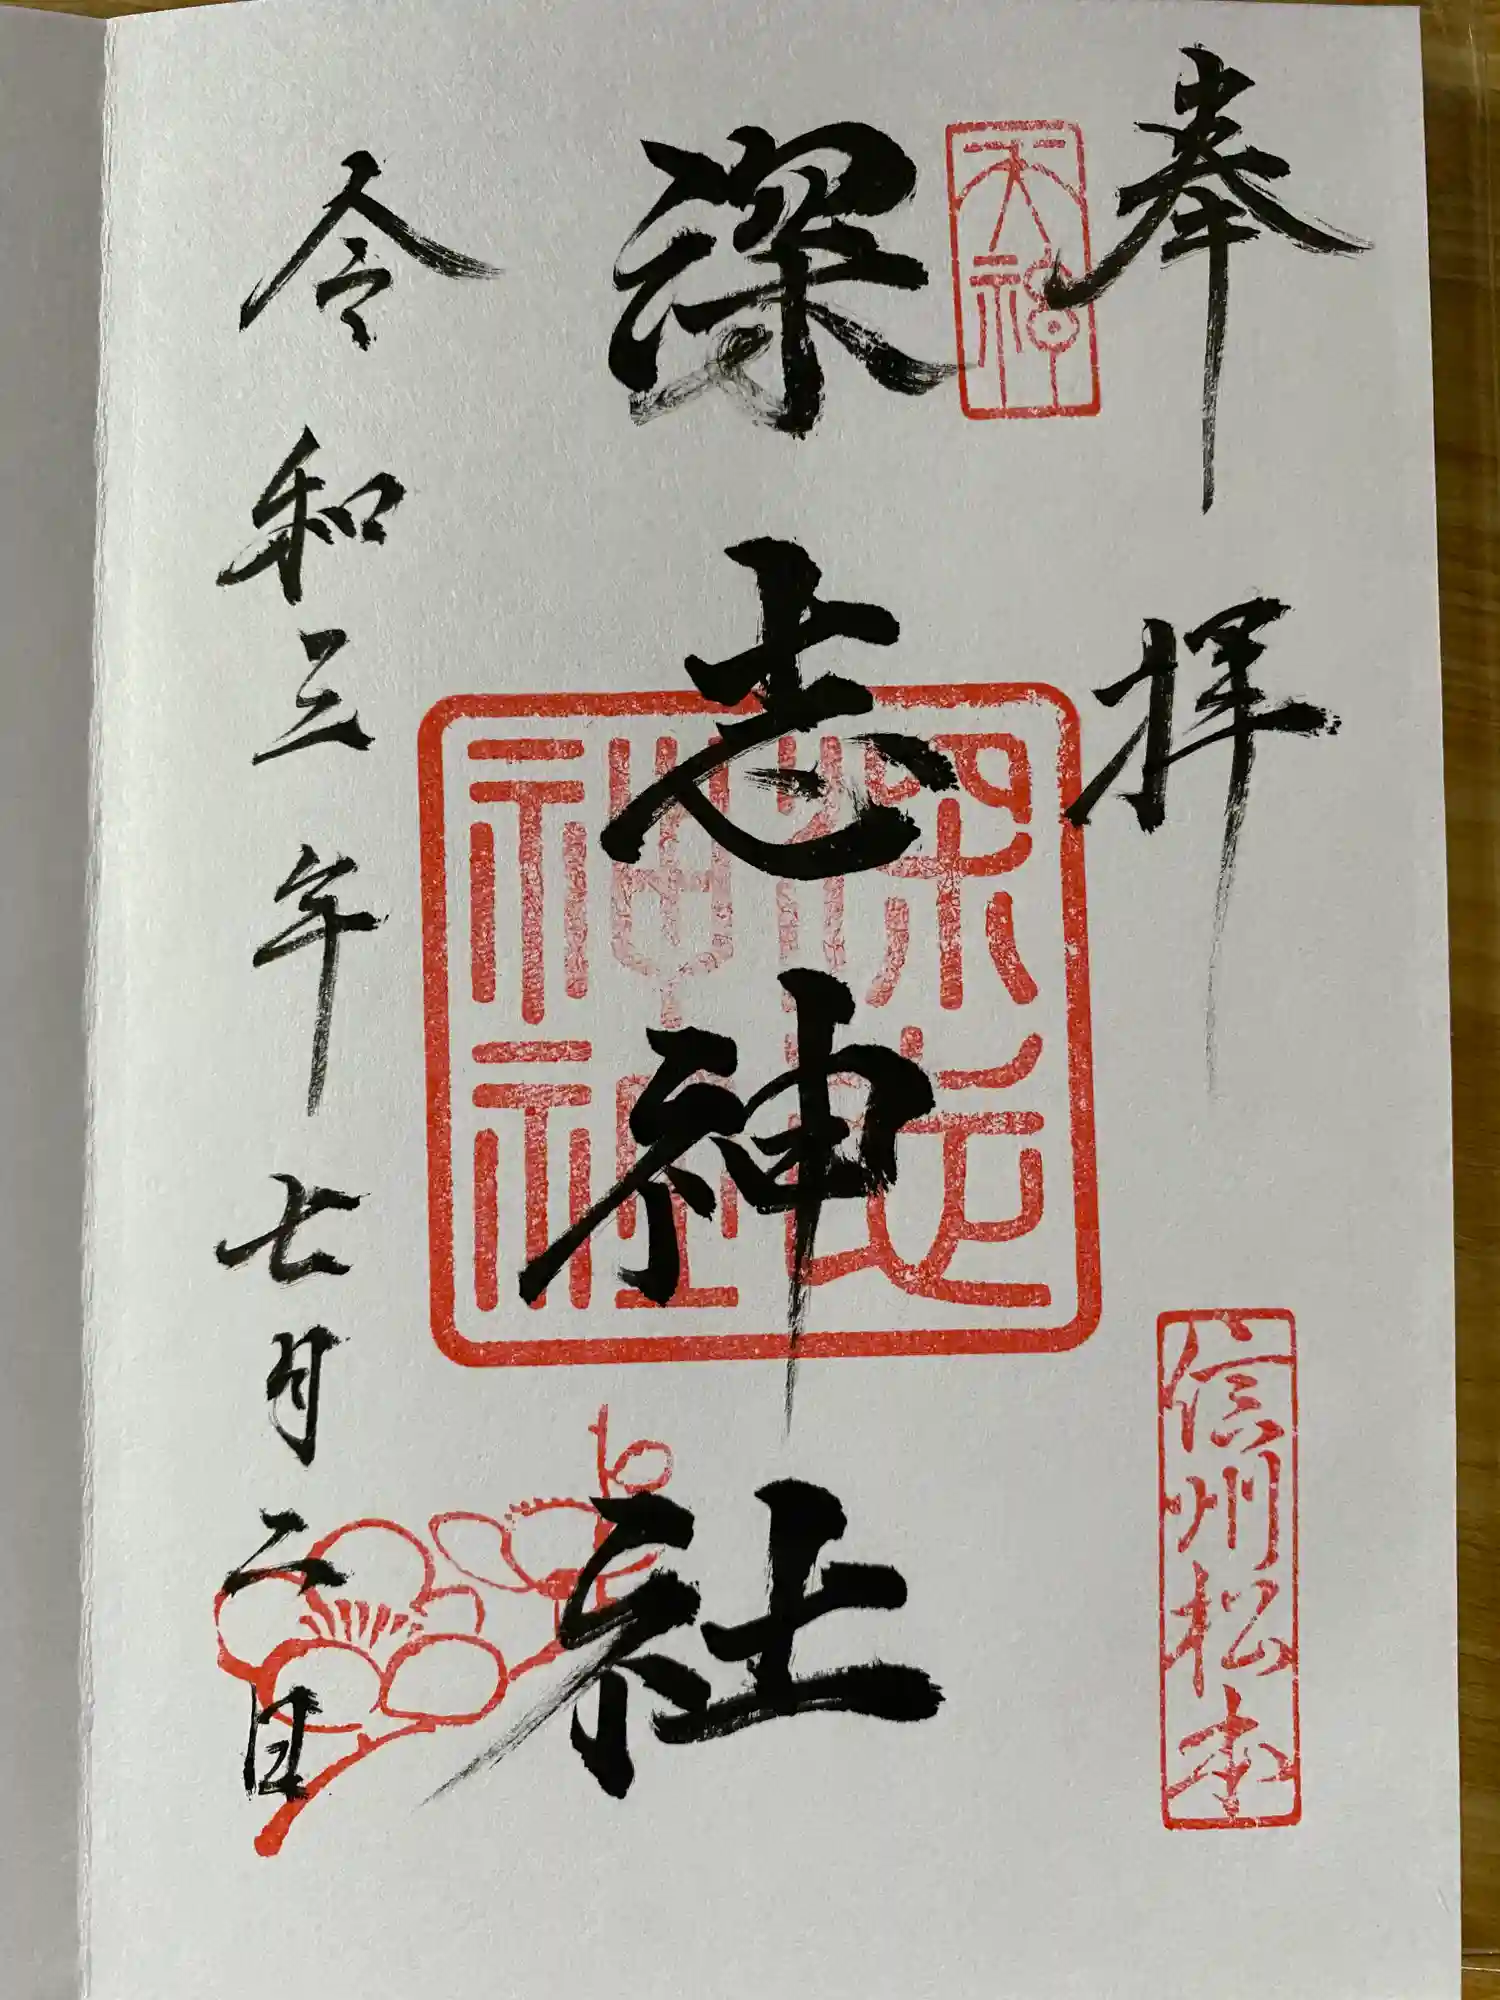 奉拝
信州松本
天神
深志神社
深志神社
令和三年七月二日